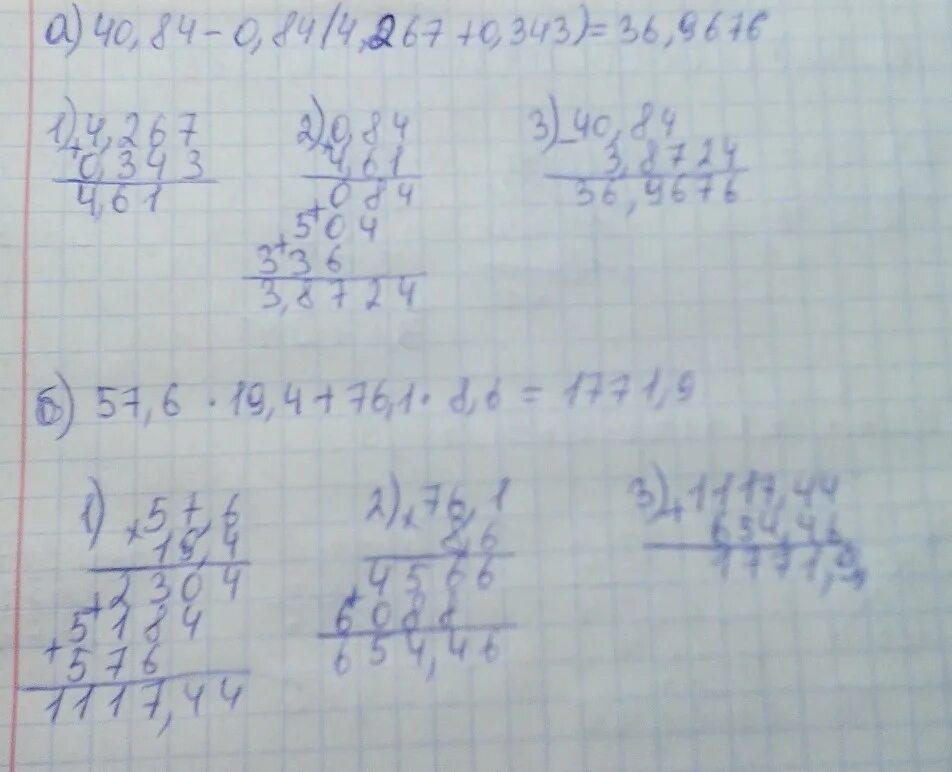 а) 40,84 - 0,84(4,267 + 0,343) = 36,9676
1) + 4,267
0,343
4,61
2) × 0,84
4,61
+ 084
+ 504
336
3,8724
3) - 40,84
3,8724
36,9676
б) 57,6 · 19,4 + 76,1 · 8,6 = 1771,9
1) × 57,6
19,4
2304
+ 5184
+ 576
1117,44
2) × 76,1
8,6
4566
+ 6088
654,46
3) + 1117,44
654,46
1771,9